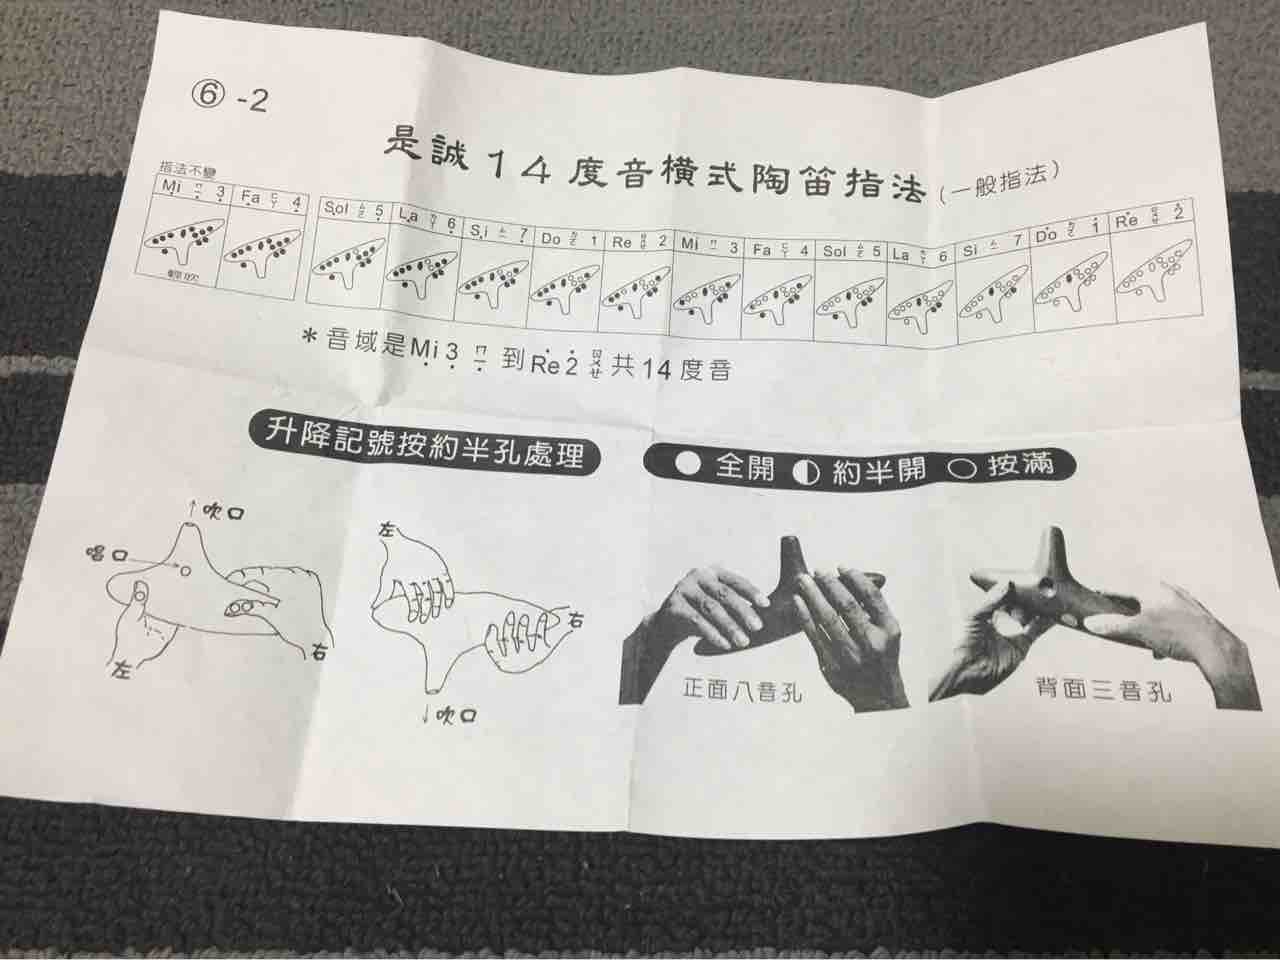 ⑥ -2
是誠14度音橫式陶笛指法(一般指法)
指法不變
Mi ㄇㄧ 3̣ Fa ㄈㄚ 4̣ Sol ㄙㄛ 5̣ La ㄌㄚ 6̣ Si ㄒㄧ 7̣ Do ㄉㄛ 1 Re ㄖㄨㄝ 2 Mi ㄇㄧ 3 Fa ㄈㄚ 4 Sol ㄙㄛ 5 La ㄌㄚ 6 Si ㄒㄧ 7 Do ㄉㄛ 1̇ Re ㄖㄨㄝ 2̇
輕吹
*音域是Mi 3̣ ㄇㄧ 到 Re 2̇ ㄖㄨㄝ 共14度音
升降記號按約半孔處理
● 全開 ◐ 約半開 ○ 按滿
↑吹口
唱口
左
右
左
右
↓吹口
正面八音孔
背面三音孔